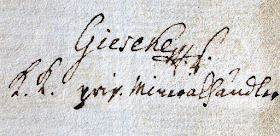 Giesecke
K. K. priv. Mineralhändler